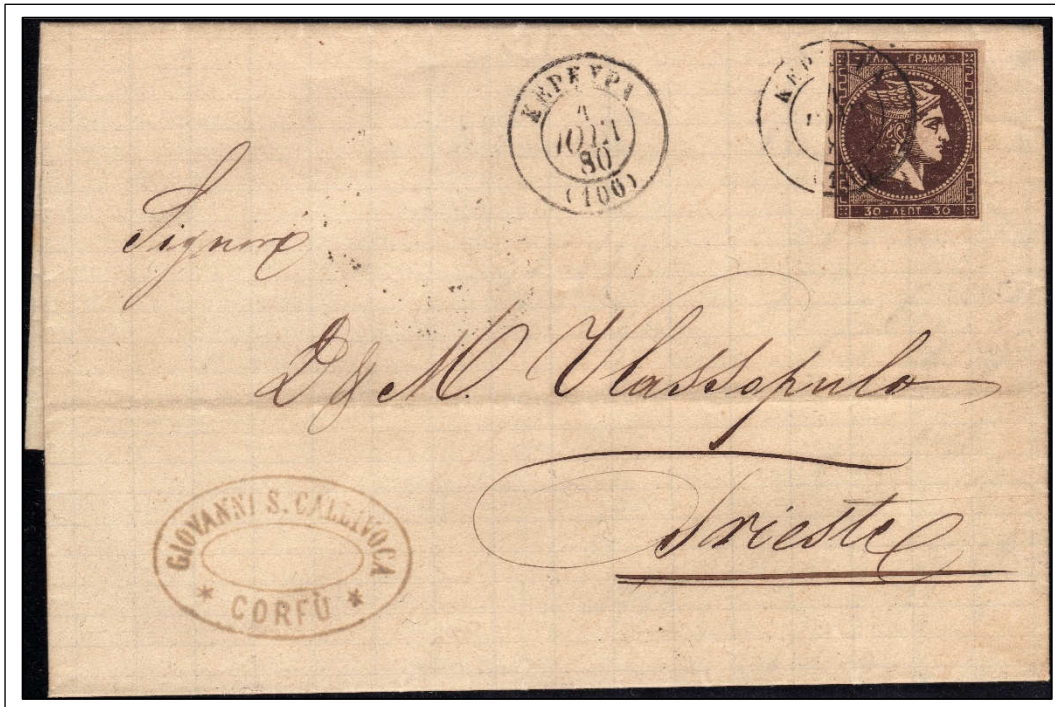 ΚΕΡΚΥΡΑ
ΙΟΥΛ
80
(106)
ΓΡΑΜΜ
30 · ΛΕΠΤ · 30
Signori
D & M. Vlassopulo
Trieste
GIOVANNI S. CALLIVOCA
* CORFÙ *